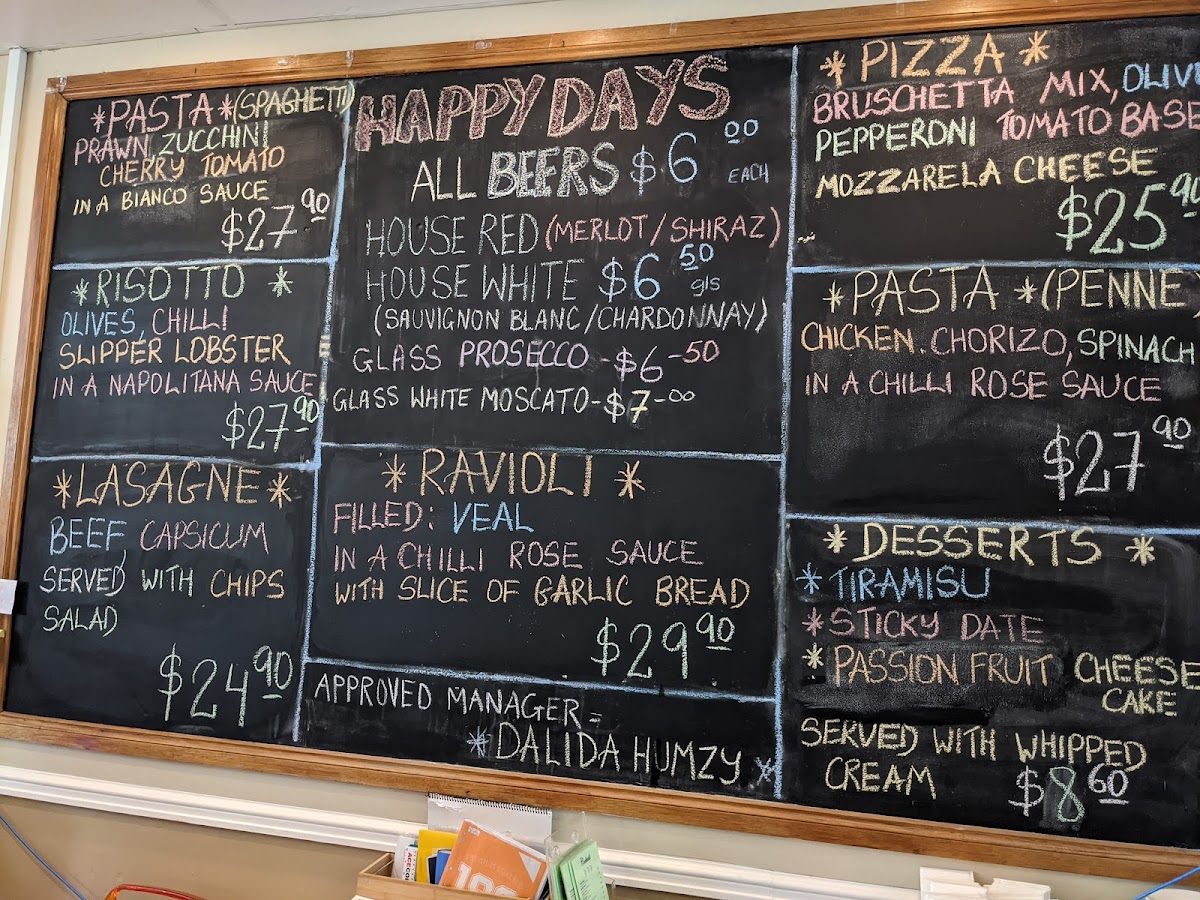 *PASTA*(SPAGHETTI)
PRAWN, ZUCCHINI
CHERRY TOMATO
IN A BIANCO SAUCE
$27.90
*RISOTTO*
OLIVES, CHILLI
SLIPPER LOBSTER
IN A NAPOLITANA SAUCE
$27.90
*LASAGNE*
BEEF CAPSICUM
SERVED WITH CHIPS
SALAD
$24.90
HAPPY DAYS
ALL BEERS $6.00 EACH
HOUSE RED (MERLOT/SHIRAZ)
HOUSE WHITE $6.50 gls
(SAUVIGNON BLANC/CHARDONNAY)
GLASS PROSECCO-$6-50
GLASS WHITE MOSCATO-$7-00
*RAVIOLI*
FILLED: VEAL
IN A CHILLI ROSE SAUCE
WITH SLICE OF GARLIC BREAD
$29.90
APPROVED MANAGER=
*DALIDA HUMZY*
*PIZZA*
BRUSCHETTA MIX, OLIV
PEPPERONI TOMATO BASE
MOZZARELA CHEESE
$25.90
*PASTA*(PENNE)
CHICKEN. CHORIZO, SPINACH
IN A CHILLI ROSE SAUCE
$27.90
*DESSERTS*
*TIRAMISU
*STICKY DATE
*PASSION FRUIT CHEESE
CAKE
SERVED WITH WHIPPED
CREAM $8.60